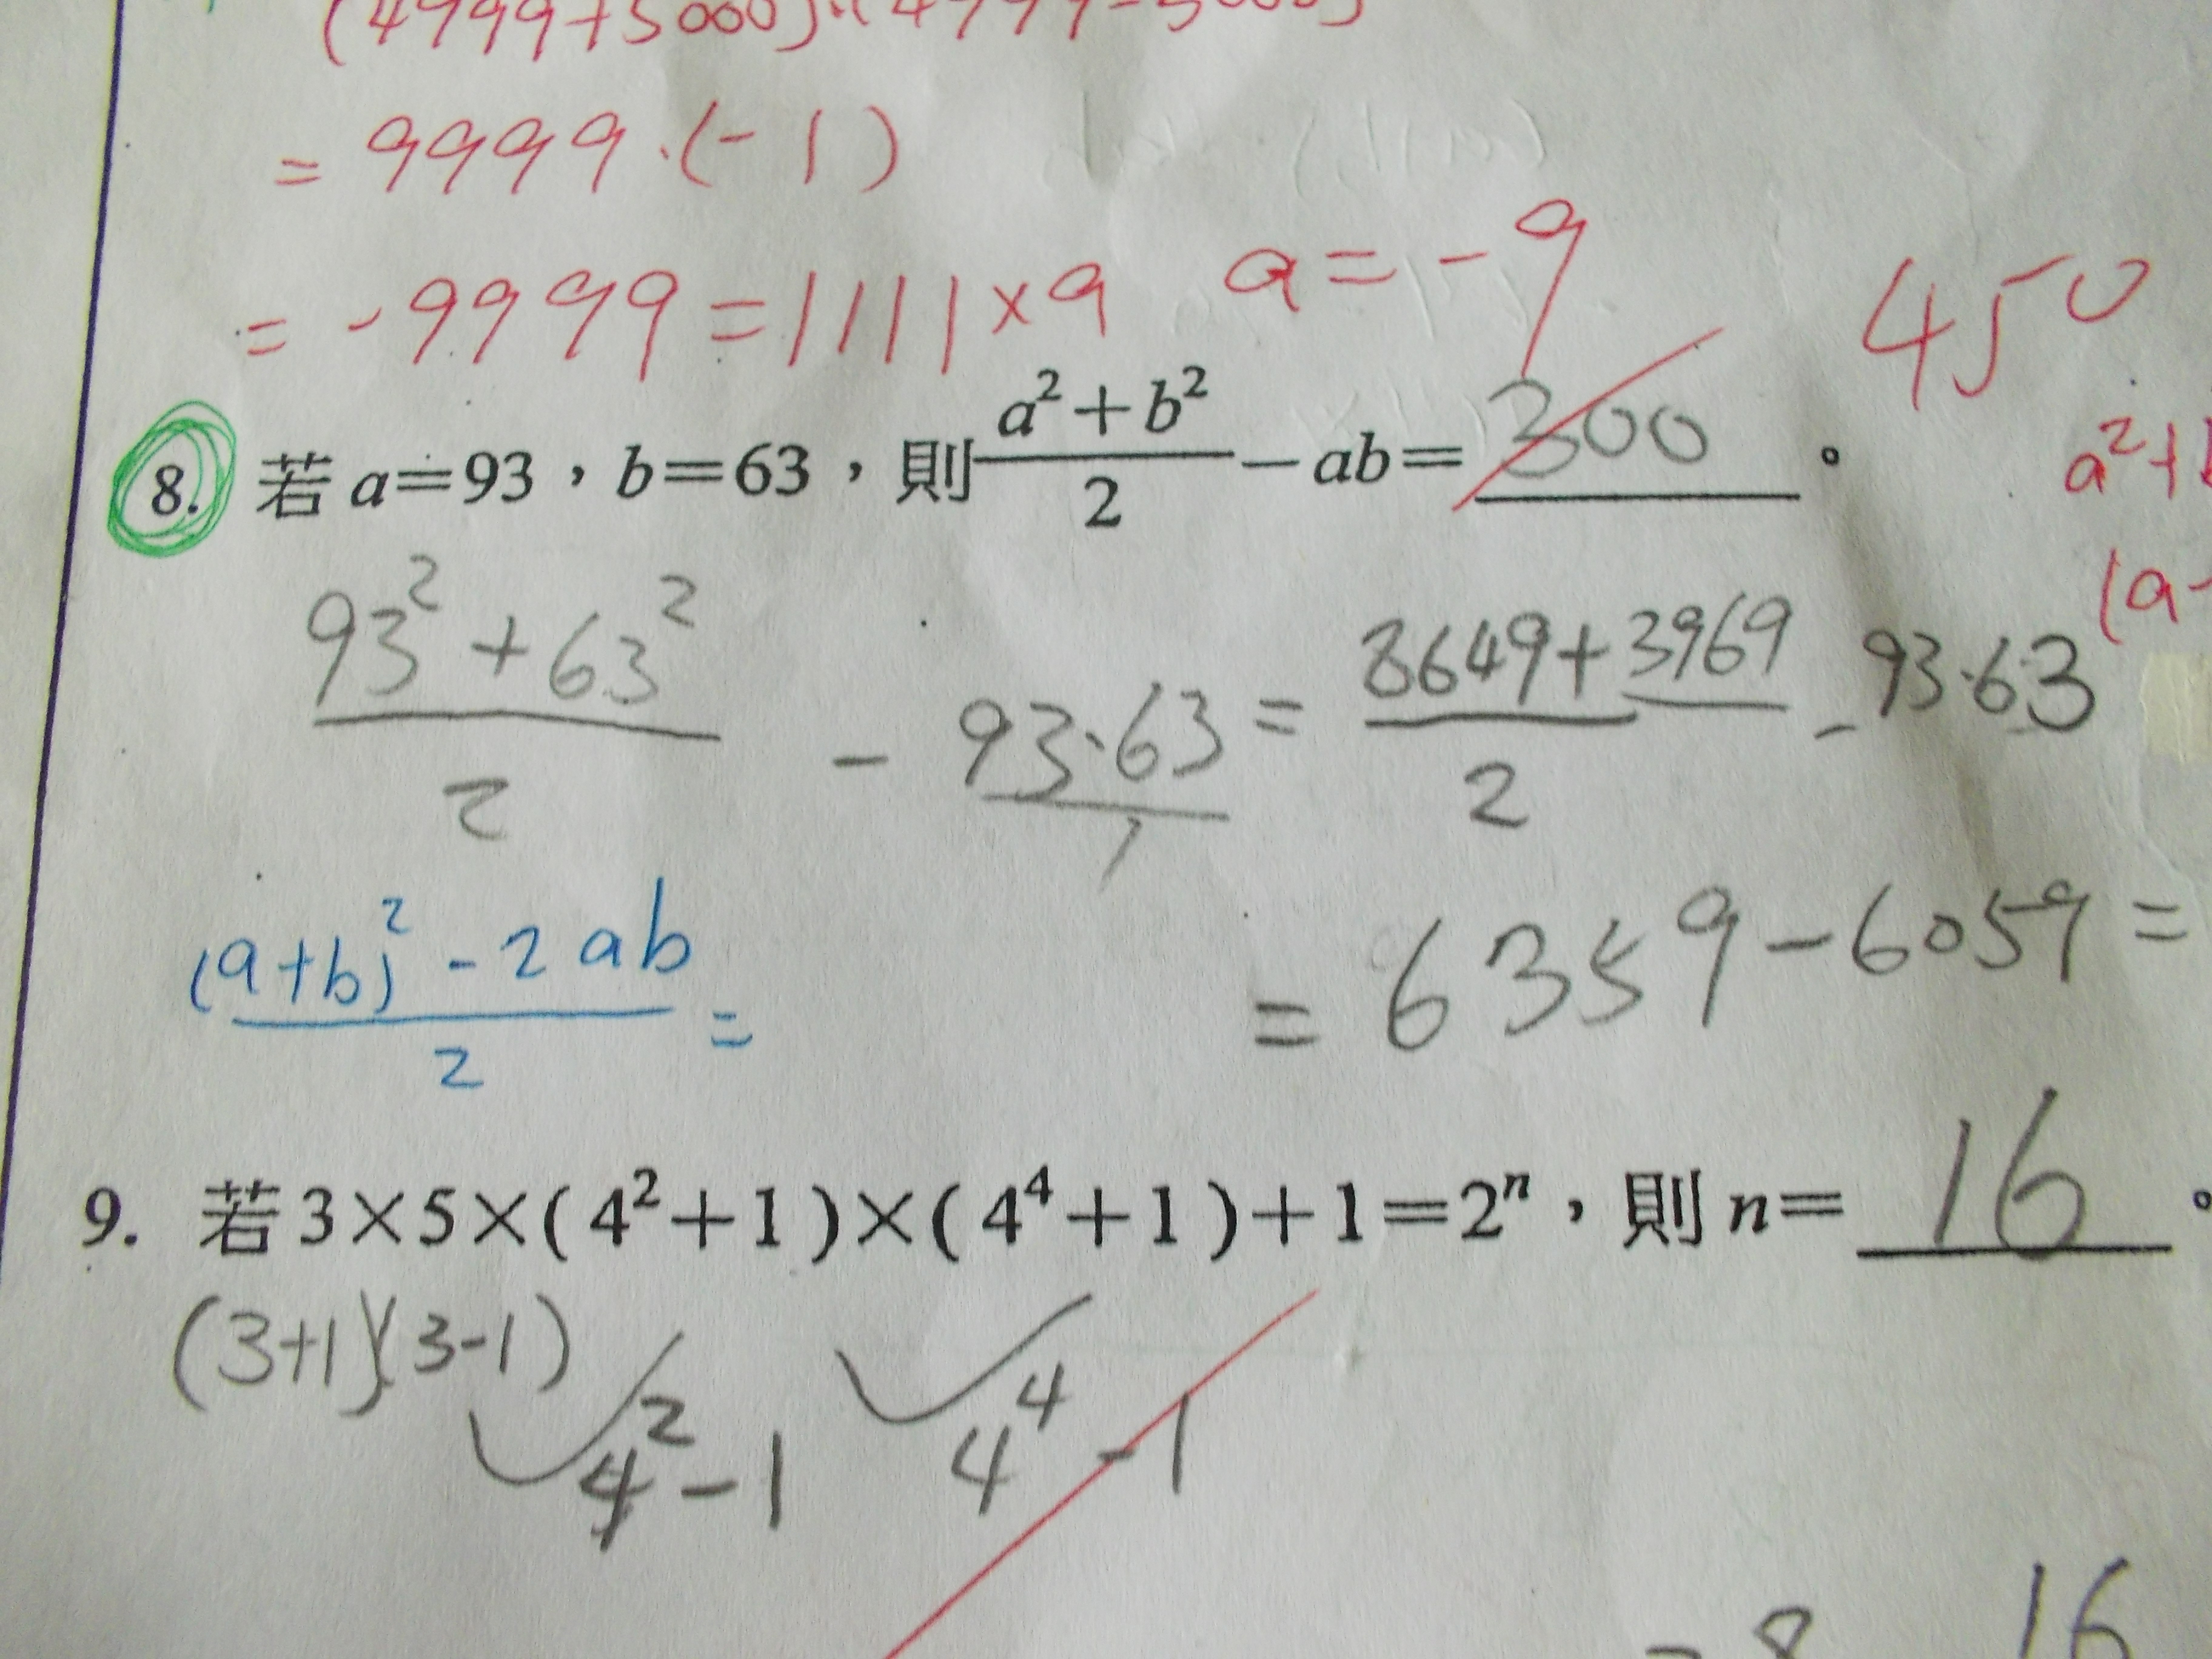 (4999+5000)·(4999-5000)
= 9999·(-1)
= -9999 = 1111×9 a=-9
450
8. 若 a=93，b=63，則 (a²+b²)/2 -ab= 300 。
a²+
(a-
(93²+63²)/2 - 93·63/1 = (8649+3969)/2 - 93·63
((a+b)²-2ab)/2 =
= 6359-6059=
9. 若3×5×(4²+1)×(4⁴+1)+1=2ⁿ，則 n= 16 。
(3+1)(3-1)
4²-1 4⁴-1
16